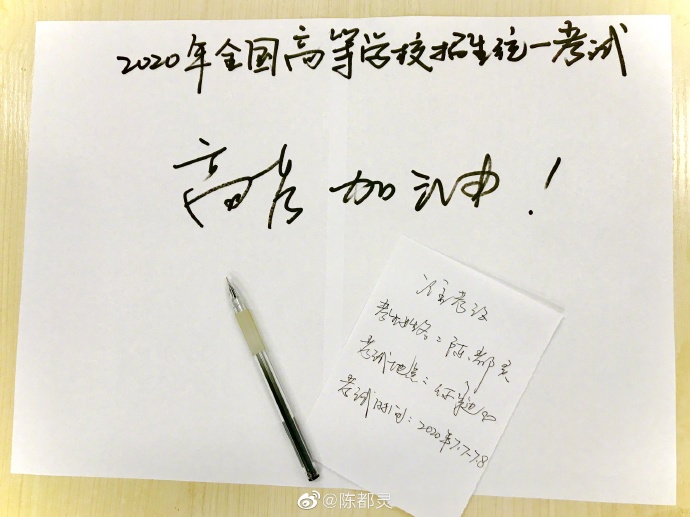 2020年全国高等学校招生统一考试
高考加油!
准考证
考生姓名:陈都灵
考试地点:
考试时间:2020年7.7-7.8
@陈都灵